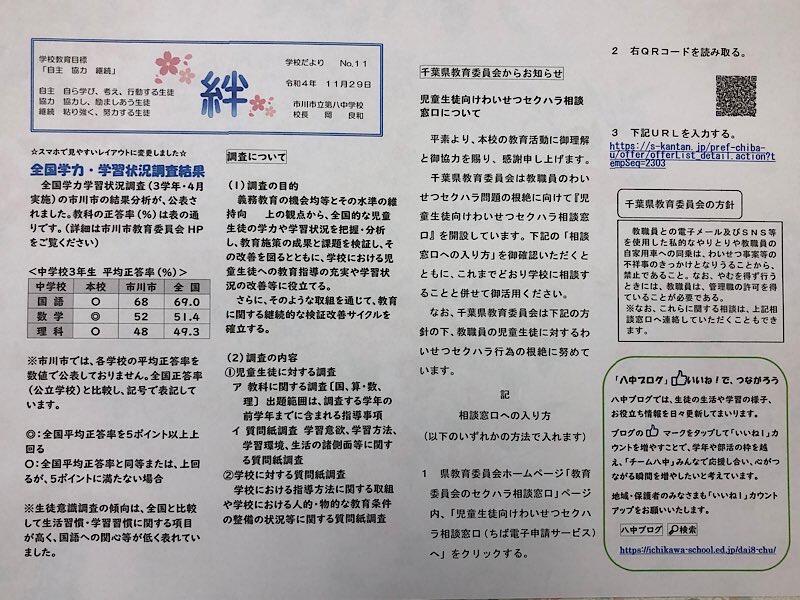 学校教育目標
「自主 協力 継続」
自主 自ら学び、考え、行動する生徒
協力 協力し、励ましあう生徒
継続 粘り強く、努力する生徒
絆
学校だより No.11
令和4年 11月29日
市川市立第八中学校
校長 岡 良和
☆スマホで見やすいレイアウトに変更しました☆
全国学力・学習状況調査結果
全国学力学習状況調査(3学年・4月
実施)の市川市の結果分析が、公表さ
れました。教科の正答率(%)は表の通
りです。(詳細は市川市教育委員会HP
をご覧ください)
<中学校3年生 平均正答率(%)>
中学校 本校 市川市 全国
国語 ○ 68 69.0
数学 ◎ 52 51.4
理科 ○ 48 49.3
※市川市では、各学校の平均正答率を
数値で公表しておりません。全国正答率
(公立学校)と比較し、記号で表記して
います。
◎:全国平均正答率を5ポイント以上上
回る
○:全国平均正答率と同等または、上回
るが、5ポイントに満たない場合
※生徒意識調査の傾向は、全国と比較
して生活習慣・学習習慣に関する項目
が高く、国語への関心等が低く表れてい
ました。
調査について
(1)調査の目的
義務教育の機会均等とその水準の維
持向 上の観点から、全国的な児童
生徒の学力や学習状況を把握・分析
し、教育施策の成果と課題を検証し、そ
の改善を図るとともに、学校における児
童生徒への教育指導の充実や学習状
況の改善等に役立てる。
さらに、そのような取組を通じて、教育
に関する継続的な検証改善サイクルを
確立する。
(2)調査の内容
①児童生徒に対する調査
ア 教科に関する調査〔国、算・数、
理〕 出題範囲は、調査する学年の
前学年までに含まれる指導事項
イ 質問紙調査 学習意欲、学習方法、
学習環境、生活の諸側面等に関す
る質問紙調査
②学校に対する質問紙調査
学校における指導方法に関する取組
や学校における人的・物的な教育条件
の整備の状況等に関する質問紙調査
千葉県教育委員会からお知らせ
児童生徒向けわいせつセクハラ相談
窓口について
平素より、本校の教育活動に御理解
と御協力を賜り、感謝申し上げます。
千葉県教育委員会は教職員のわい
せつセクハラ問題の根絶に向けて『児
童生徒向けわいせつセクハラ相談窓
口』を開設しています。下記の「相談
窓口への入り方」を御確認いただくと
ともに、これまでどおり学校に相談す
ることと併せて御活用ください。
なお、千葉県教育委員会は下記の方
針の下、教職員の児童生徒に対するわ
いせつセクハラ行為の根絶に努めて
います。
記
相談窓口への入り方
(以下のいずれかの方法で入れます)
1 県教育委員会ホームページ「教育
委員会のセクハラ相談窓口」ページ
内、「児童生徒向けわいせつセクハ
ラ相談窓口(ちば電子申請サービス)
へ」をクリックする。
2 右QRコードを読み取る。
3 下記URLを入力する。
https://s-kantan.jp/pref-chiba-
u/offer/offerList_detail.action?t
empSeq=2303
千葉県教育委員会の方針
教職員との電子メール及びSNS等
を使用した私的なやりとりや教職員の
自家用車への同乗は、わいせつ事案等の
不祥事のきっかけとなりうることから、
禁止であること。なお、やむを得ず行う
ときには、教職員は、管理職の許可を得
ていることが必要である。
※なお、これらに関する相談は、上記相
談窓口へ連絡していただくこともでき
ます。
「八中ブログ」いいね!で、つながろう
八中ブログでは、生徒の生活や学習の様子、
お役立ち情報を日々更新してまいります。
ブログの マークをタップして「いいね!」カ
ウントを増やすことで、学年や部活の枠を越
え、「チーム八中」みんなで応援し合い、心がつ
ながる瞬間を増やしたいと考えています。
地域・保護者のみなさまも「いいね!」カウント
アップをお願いいたします。
八中ブログ 検索
https://ichikawa-school.ed.jp/dai8-chu/